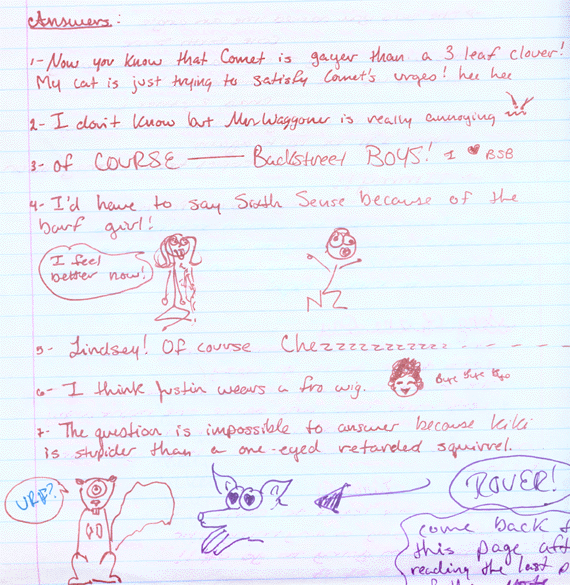 Answers:
1- Now you know that Comet is gayer than a 3 leaf clover!
My cat is just trying to satisfy Comet's urges! hee hee
2- I don't know but Mr. Waggoner is really annoying
3- of COURSE — Backstreet BOYS! I ♥ BSB
4- I'd have to say Sixth Sense because of the
barf girl!
I feel
better now!
NZ
5- Lindsey! Of course Chezzzzzzzzzzzz
6- I think Justin wears a fro wig. Bye Bye Bye
7- The question is impossible to answer because Kiki
is stupider than a one-eyed retarded squirrel.
URP?
ROVER!
come back t
this page aft
reading the last p